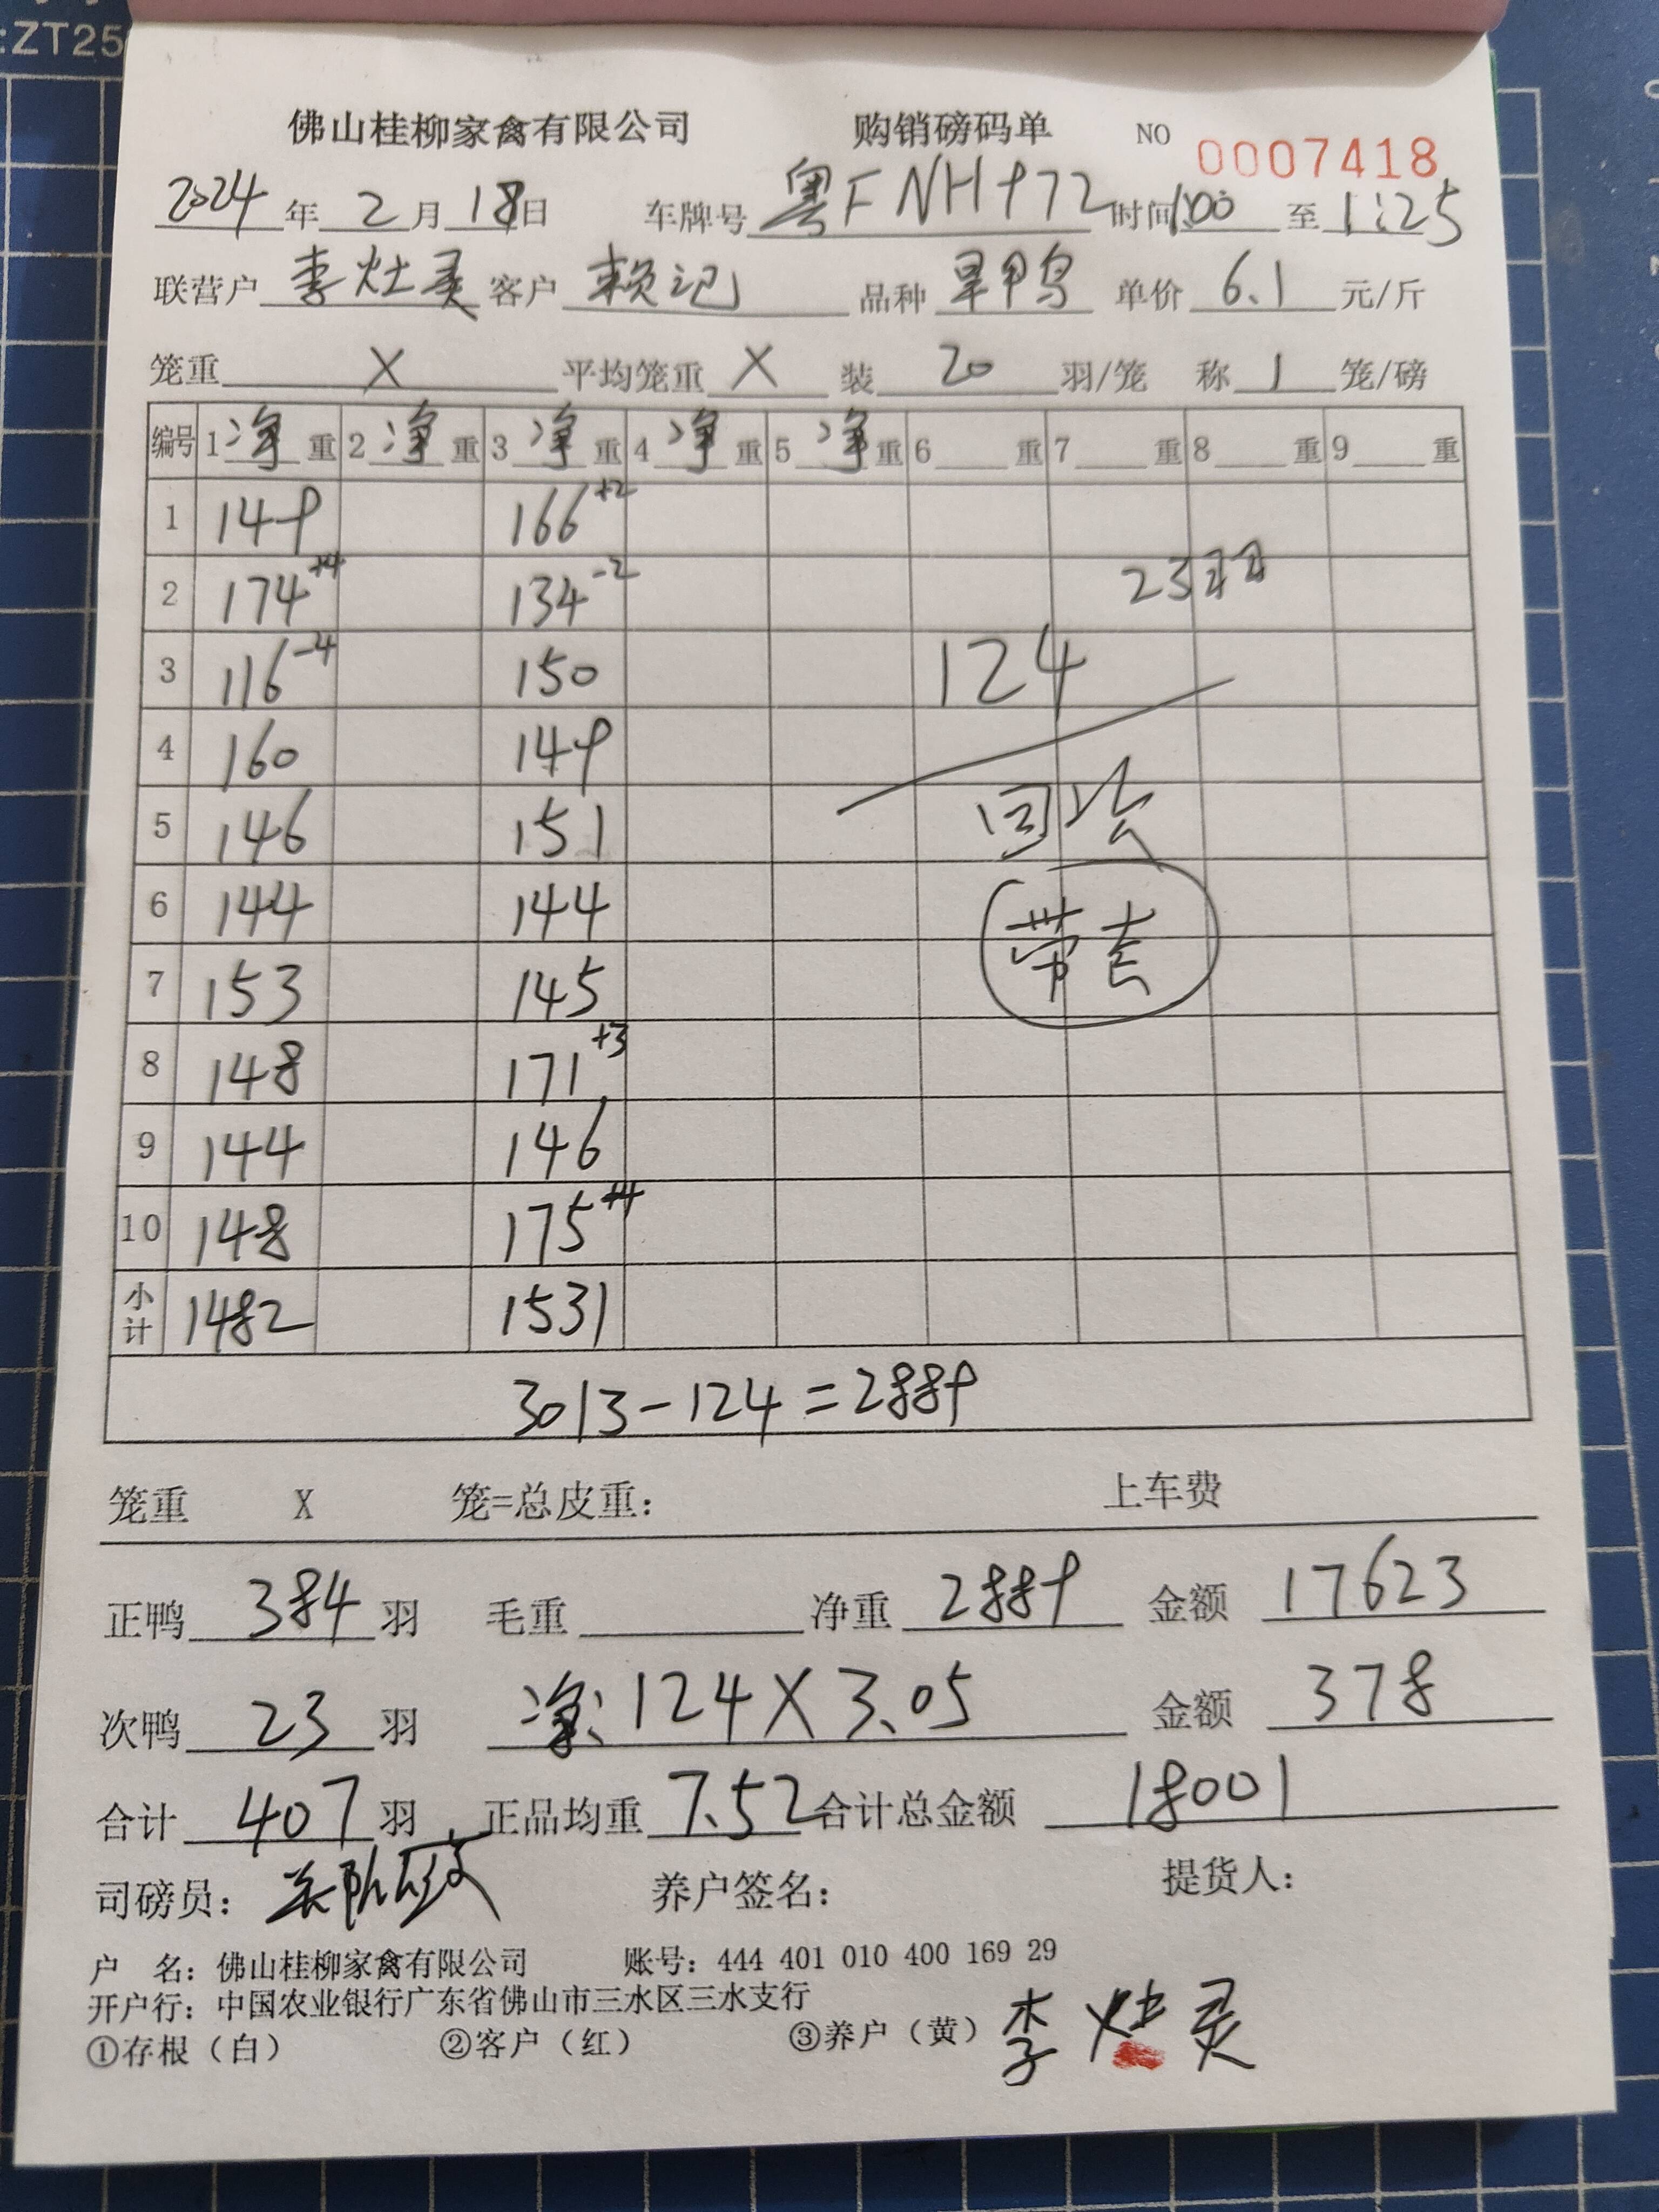 :ZT25
佛山桂柳家禽有限公司 购销磅码单 NO 0007418
2024 年 2 月 18 日 车牌号 粤FNH972 时间 1:00 至 1:25
联营户 李灶灵 客户 赖记 品种 旱鸭 单价 6.1 元/斤
笼重 X 平均笼重 X 装 20 羽/笼 称 1 笼/磅
编号 1 净 重 2 净 重 3 净 重 4 净 重 5 净 重 6 重 7 重 8 重 9 重
1 149 166 +2
2 174 +4 134 -2 23
3 116 -4 150 124
4 160 149
5 146 151
6 144 144
7 153 145
8 148 171 +3
9 144 146
10 148 175 +4
小计 1482 1531
3013-124=2889
笼重 X 笼=总皮重: 上车费
正鸭 384 羽 毛重 净重 2889 金额 17623
次鸭 23 羽 净: 124X3.05 金额 378
合计 407 羽 正品均重 7.52 合计总金额 18001
司磅员: 养户签名: 提货人:
户 名: 佛山桂柳家禽有限公司 账号: 444 401 010 400 169 29
开户行: 中国农业银行广东省佛山市三水区三水支行
①存根（白） ②客户（红） ③养户（黄） 李灶灵